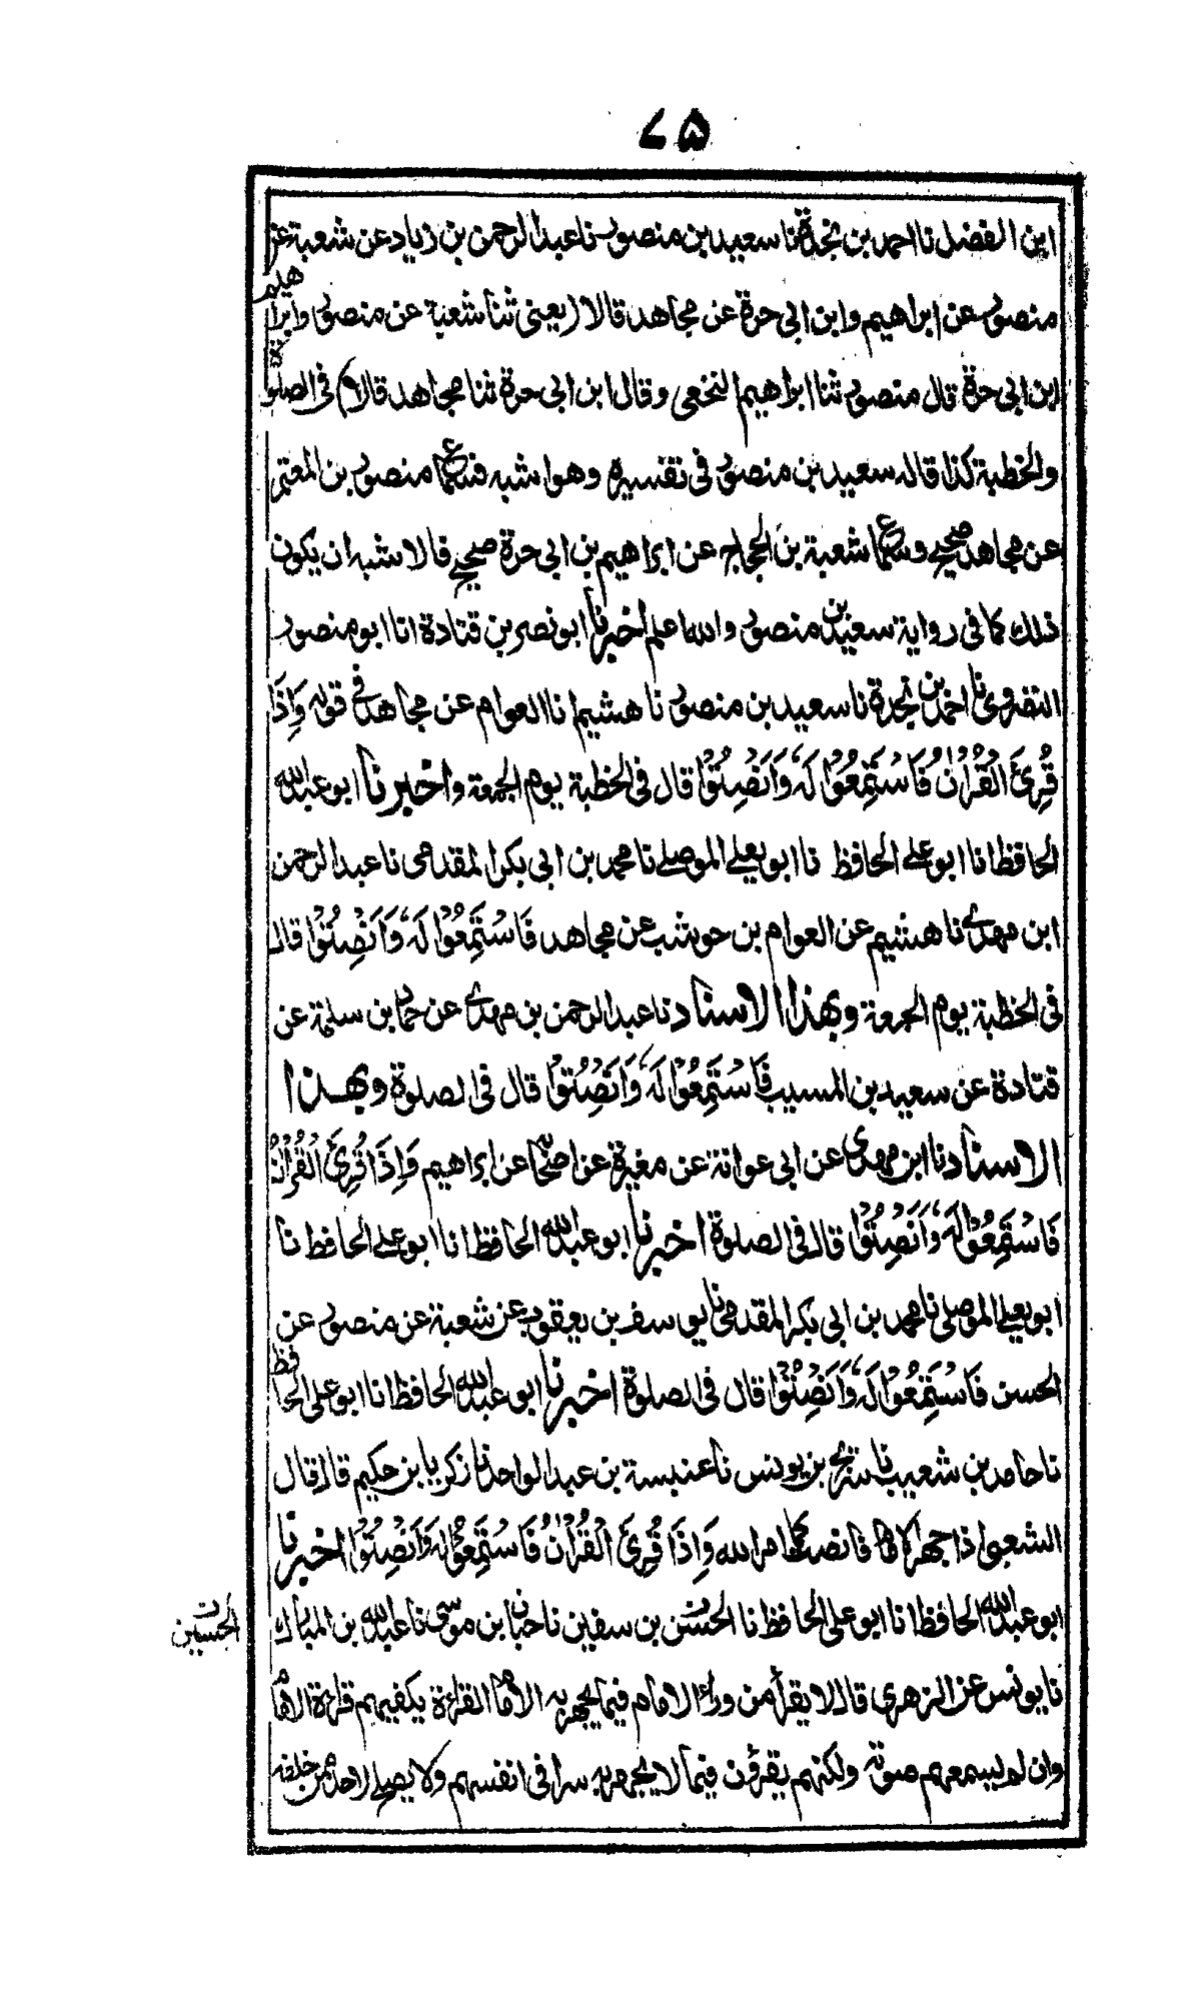 ٧٥
ابن الفضل نا احمد بن نجدة نا سعيد بن منصور نا عبد الرحمن بن زياد عن شعبة عن
منصور عن ابراهيم وابن ابى حرة عن مجاهد قالا (يعنى ثنا شعبة عن منصور وابراهيم
ابن ابى حرة قال منصور ثنا ابراهيم النخعى وقال ابن ابى حرة ثنا مجاهد قالا) فى الصلوة
والخطبة كذا قاله سعيد بن منصور فى تفسيره وهو اشبه فسماع منصور بن المعتمر
عن مجاهد صحيح وسماع شعبة بن الحجاج عن ابراهيم بن ابى حرة صحيح فالاشبه ان يكون
ذلك كما فى رواية سعيد بن منصور والله اعلم اخبرنا ابو نصر بن قتادة انا ابو منصور
النضروى نا احمد بن نجدة نا سعيد بن منصور نا هشيم انا العوام عن مجاهد فى قوله وَاِذَا
قُرِئَ الْقُرْاٰنُ فَاسْتَمِعُوْا لَهٗ وَاَنْصِتُوْا قال فى الخطبة يوم الجمعة واخبرنا ابو عبد الله
الحافظ انا ابو على الحافظ نا ابو يعلى الموصلى نا محمد بن ابى بكر المقدمى نا عبد الرحمن
ابن مهدى نا هشيم عن العوام بن حوشب عن مجاهد فَاسْتَمِعُوْا لَهٗ وَاَنْصِتُوْا قال
فى الخطبة يوم الجمعة وبهذا الاسناد نا عبد الرحمن بن مهدى عن حماد بن سلمة عن
قتادة عن سعيد بن المسيب فَاسْتَمِعُوْا لَهٗ وَاَنْصِتُوْا قال فى الصلوة وبهذا
الاسناد نا ابن مهدى عن ابى عوانة عن مغيرة عن اصحابه عن ابراهيم وَاِذَا قُرِئَ الْقُرْاٰنُ
فَاسْتَمِعُوْا لَهٗ وَاَنْصِتُوْا قال فى الصلوة اخبرنا ابو عبد الله الحافظ انا ابو على الحافظ نا
ابو يعلى الموصلى نا محمد بن ابى بكر المقدمى نا يوسف بن يعقوب عن شعبة عن منصور عن
الحسن فَاسْتَمِعُوْا لَهٗ وَاَنْصِتُوْا قال فى الصلوة اخبرنا ابو عبد الله الحافظ انا ابو على الحافظ
نا حامد بن شعيب نا سريج بن يونس نا عنبسة بن عبد الواحد نا زكريا بن حكيم قال قال
الشعبى اذا جهر الامام فانصت كما امر الله وَاِذَا قُرِئَ الْقُرْاٰنُ فَاسْتَمِعُوْا لهٗ وَاَنْصِتُوْا اخبرنا
ابو عبد الله الحافظ انا ابو على الحافظ نا الحسن بن سفين نا حبان بن موسى نا عبد الله بن المبارك
الحسين
نا يونس عن الزهرى قال لا يقرأ من وراء الامام فيما يجهر به الامام القراءة يكفيهم قراءة الامام
وان لم يسمعهم صوته ولكنهم يقرؤن فيما لا يجهر به سرا فى انفسهم ولا يصلح لاحد من خلفه